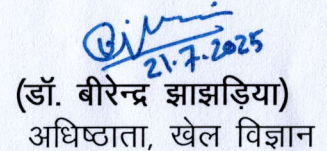 21.7.2025
(डॉ. बीरेन्द्र झाझड़िया)
अधिष्ठाता, खेल विज्ञान